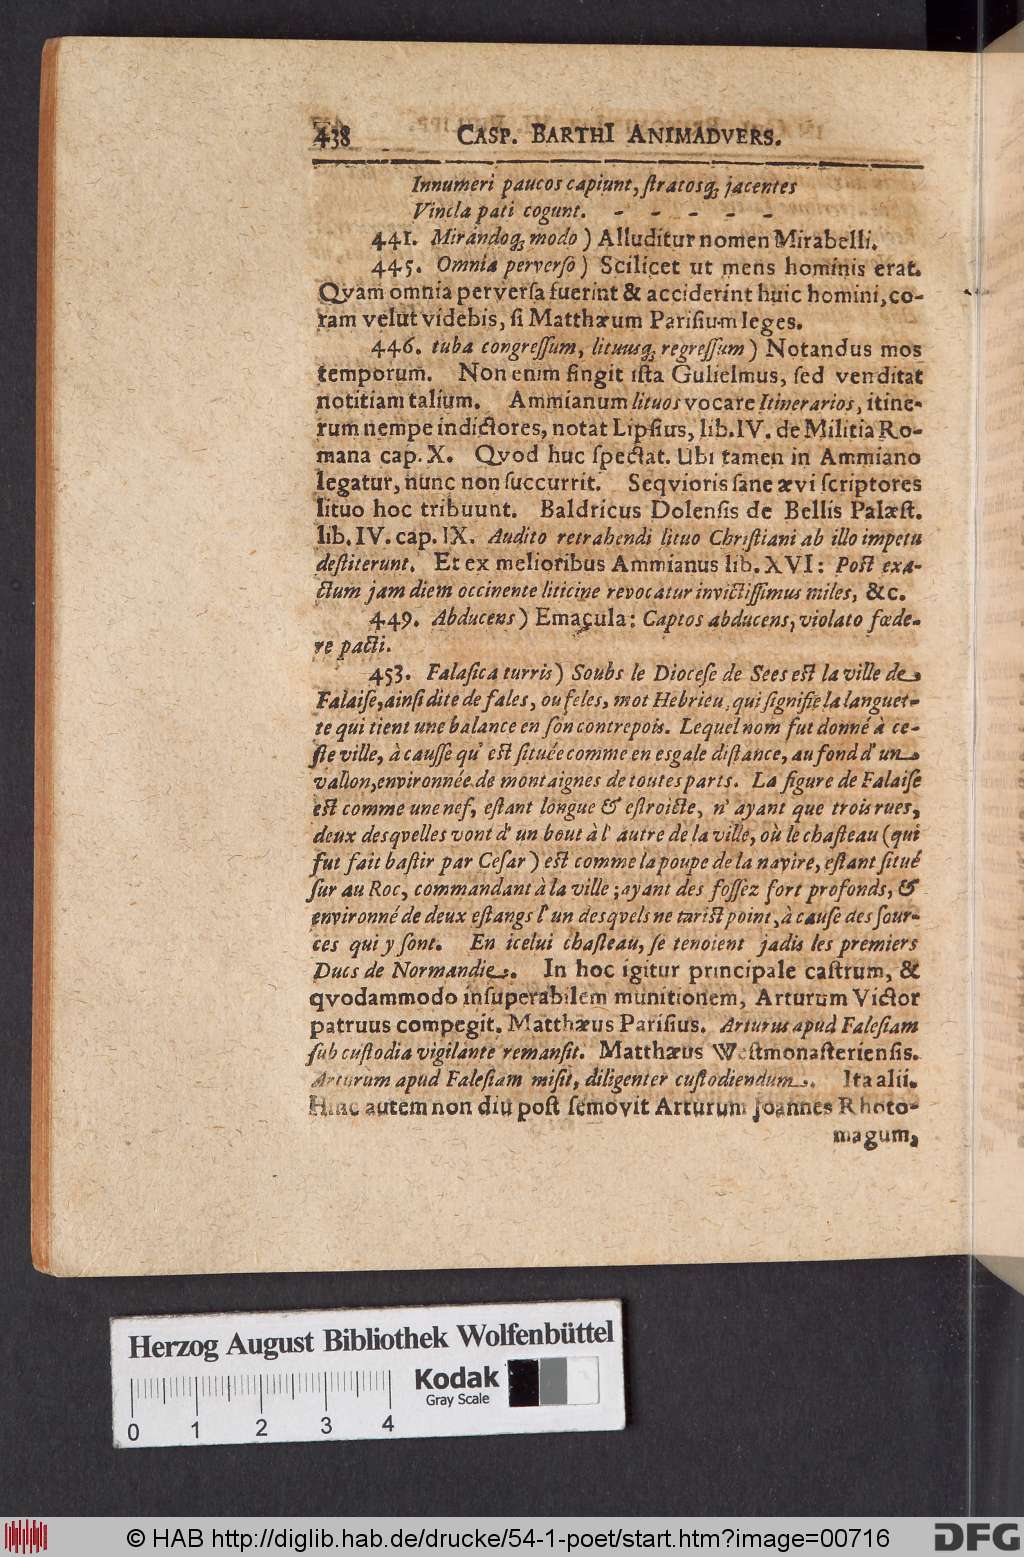 438 CASP. BARTHI ANIMADVERS.
Innumeri paucos capiunt, ſtratosq; jacentes
Vincla pati cogunt. - - - - -
441. Mirandoq; modo) Alluditur nomen Mirabelli.
445. Omnia perverſo) Scilicet ut mens hominis erat.
Qvam omnia perverſa fuerint & acciderint huic homini, co-
ram velut videbis, ſi Matthæum Pariſium leges.
446. tuba congreſſum, lituusq; regreſſum) Notandus mos
temporum. Non enim fingit iſta Gulielmus, ſed venditat
notitiam talium. Ammianum lituos vocare Itinerarios, itine-
rum nempe indictores, notat Lipſius, lib. IV. de Militia Ro-
mana cap. X. Qvod huc ſpectat. Ubi tamen in Ammiano
legatur, nunc non ſuccurrit. Seqvioris ſane ævi ſcriptores
lituo hoc tribuunt. Baldricus Dolenſis de Bellis Palæſt.
lib. IV. cap. IX. Audito retrahendi lituo Chriſtiani ab illo impetu
deſtiterunt. Et ex melioribus Ammianus lib. XVI: Poſt exa-
ctum jam diem occinente liticine revocatur invictiſſimus miles, &c.
449. Abducens) Emacula: Captos abducens, violato fœde-
re pacti.
453. Falaſica turris) Soubs le Dioceſe de Sees eſt la ville de
Falaiſe, ainſi dite de fales, ou feles, mot Hebrieu, qui ſignifie la languet-
te qui tient une balance en ſon contrepois. Lequel nom fut donné à ce-
ſte ville, à cauſſe qu' eſt ſituée comme en esgale diſtance, au fond d' un
vallon, environnée de montaignes de toutes parts. La figure de Falaiſe
eſt comme une nef, eſtant longue & eſtroicte, n' ayant que trois rues,
deux desqvelles vont d' un bout à l' autre de la ville, où le chaſteau (qui
fut fait baſtir par Ceſar) eſt comme la poupe de la navire, eſtant ſitué
ſur au Roc, commandant à la ville; ayant des foſſez fort profonds, &
environné de deux eſtangs l' un desqvels ne tariſt point, à cauſe des ſour-
ces qui y ſont. En icelui chaſteau, ſe tenoient jadis les premiers
Ducs de Normandie. In hoc igitur principale caſtrum, &
qvodammodo inſuperabilem munitionem, Arturum Victor
patruus compegit. Matthæus Pariſius. Arturus apud Faleſiam
ſub cuſtodia vigilante remanſit. Matthæus Weſtmonaſterienſis.
Arturum apud Faleſiam miſit, diligenter cuſtodiendum. Ita alii.
Hinc autem non diu poſt ſemovit Arturum Joannes Rhoto-
magum,
Herzog August Bibliothek Wolfenbüttel
Kodak
Gray Scale
0 1 2 3 4
© HAB http://diglib.hab.de/drucke/54-1-poet/start.htm?image=00716
DFG